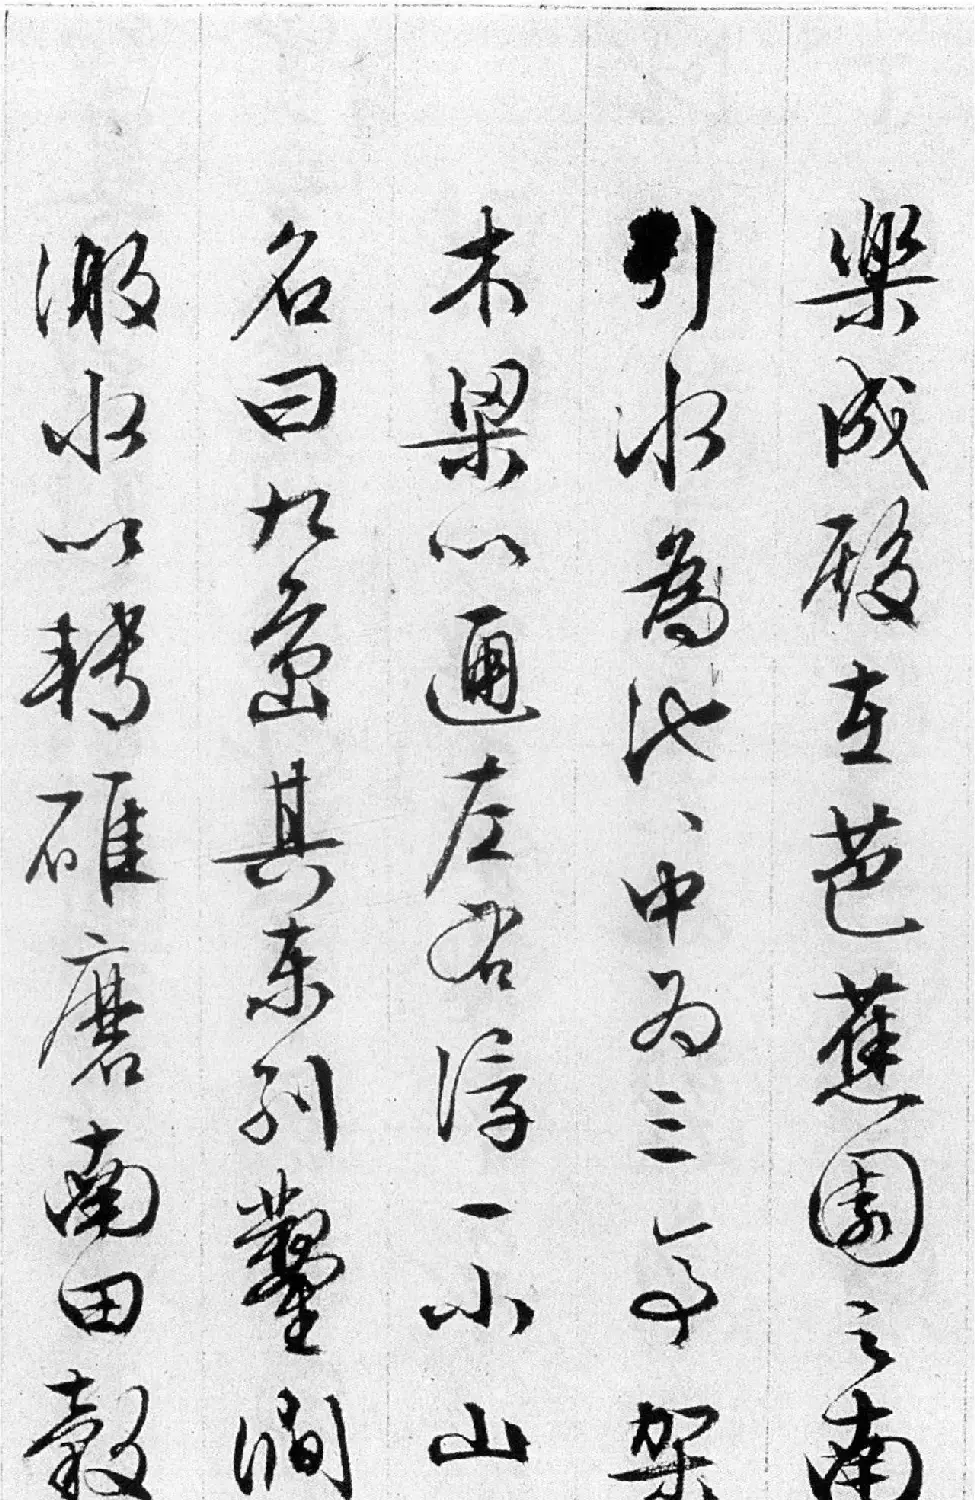 樂成殿在芭蕉園之南
引水為池、中为三亭架
木梁以通左右浮一小山
名曰九島其東列鑿澗
激水以轉碓磨南田穀